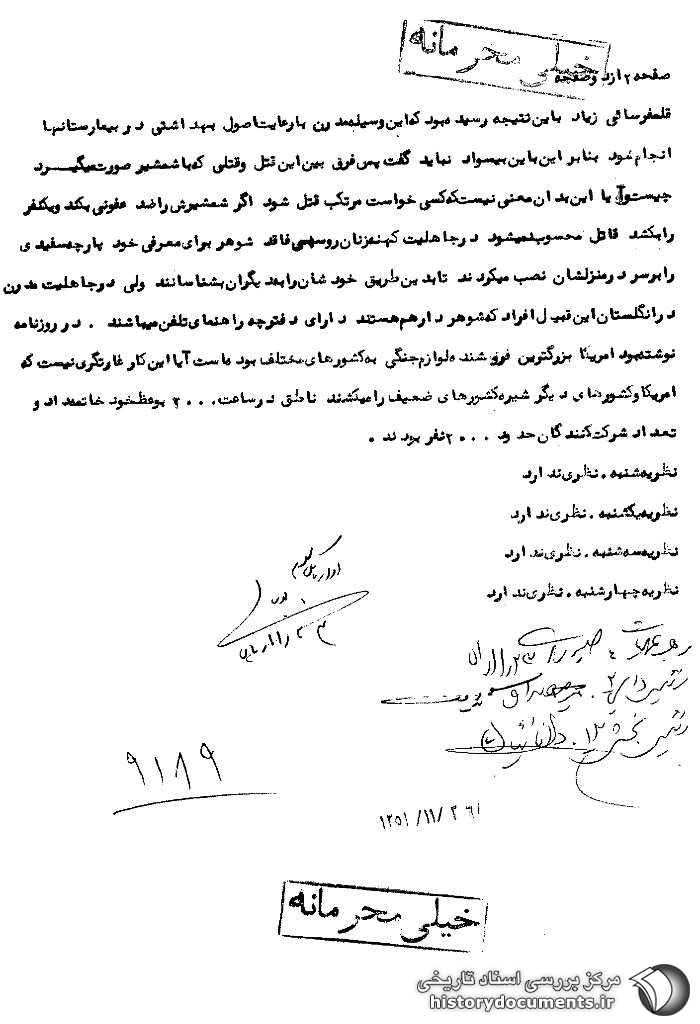 خیلی محرمانه
صفحه ۲ از دو صفحه
قلمفرسائی زیاد باین نتیجه رسیده بود که این وسیله مدرن با رعایت اصول بهداشتی در بیمارستانها
انجام شود بنابر این باین بیسواد نباید گفت پس فرق بین این قتل وقتلی که با شمشیر صورت میگیرد
چیست آیا این بدان معنی نیست که کسی خواست مرتکب قتل شود اگر شمشیرش را ضد عفونی بکند ویکنفر
را بکشد قاتل محسوب نمیشود در جاهلیت کهنه زنان روسپی فاقد شوهر برای معرفی خود پارچه سفیدی
را بر سر در منزلشان نصب میکردند تا بدین طریق خودشان را بدیگران بشناسانند ولی در جاهلیت مدرن
در انگلستان این قبیل افراد که شوهر دارهم هستند دارای دفترچه راهنمای تلفن میباشند . در روزنامه
نوشته بود امریکا بزرگترین فروشنده لوازم جنگی به کشورهای مختلف بوده است آیا این کار غارتگری نیست که
امریکا و کشورهای دیگر شیره کشورهای ضعیف را میکشند ناطق در ساعت ۲۰۰۰ بوعظ خود خاتمه داد و
تعداد شرکت کنندگان حدود ۲۰۰۰ نفر بودند .
نظریه شنبه . نظری ندارد
نظریه یکشنبه . نظری ندارد
نظریه سه شنبه . نظری ندارد
نظریه چهارشنبه . نظری ندارد
رهبر عملیات .
رئیس دایره
رئیس بخش ۱۲ .
۹۱۸۹
۱۳۵۱/۱۱/۲۶
خیلی محرمانه
مرکز بررسی اسناد تاریخی
historydocuments.ir